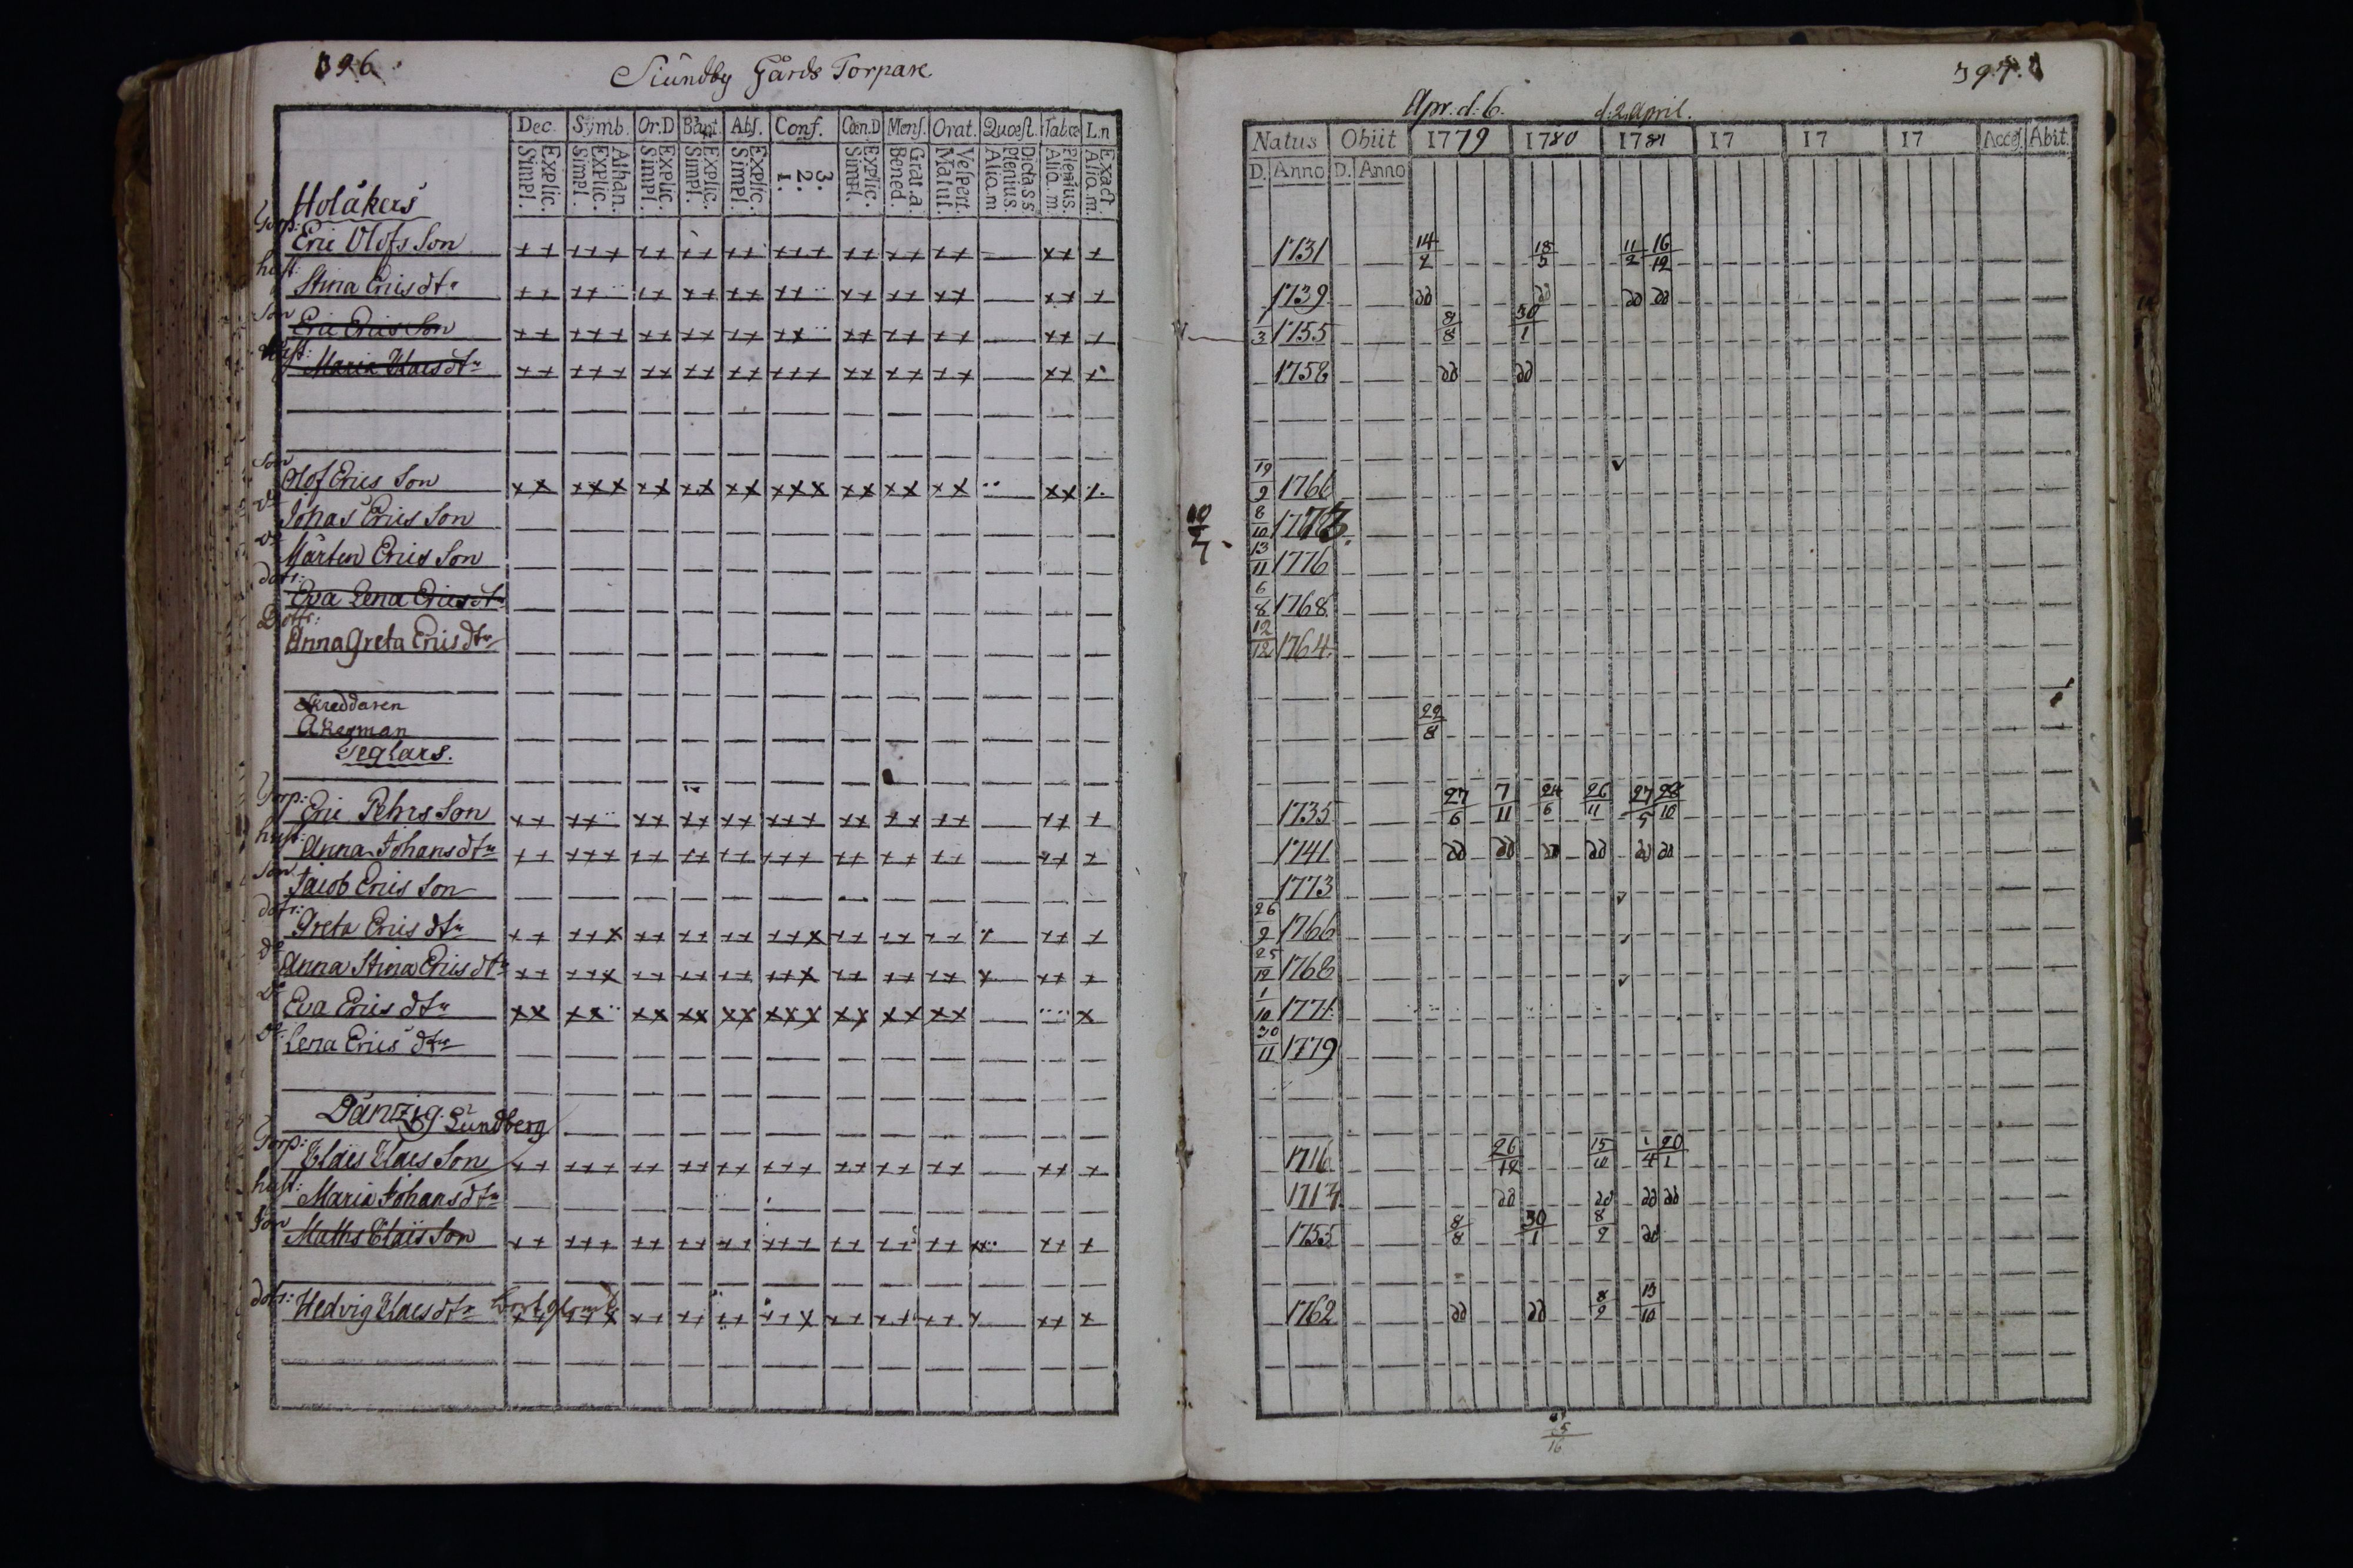 396.
Siundby Gårds Torpare
Dec. Symb. Or.D Bapt. Abs. Conf. Cœn.D Mens. Orat. Quœst. Tab.œc L.n
Explic. Simpl. Athan. Explic. Simpl. Explic. Simpl. Explic. Simpl. Explic. Simpl. 3. 2. 1. Explic. Simpl. Grat.a Bened. Vespert. Matut. Dicta S.S. Plenius. Aliq.m Plenius. Aliq.m. Exact. Aliq.m.
Holåkers
Torp: Eric Olofs Son
hust: Stina Ericsdtr
Son Eric Erics Son
hust: Maria Claesdtr
Son Olof Erics Son
do Johas Erics Son
do Mårten Erics Son
dotr: Eva Lena Ericsdtr
Dottr: Anna Greta Ericsdtr
Skreddaren
Åkerman
Seglars.
Torp: Eric Pehrs Son
hust Anna Johansdtr
Son Jacob Erics Son
dotr: Greta Erics dtr
do Anna Stina Erics dtr
do Eva Erics dtr
do Lena Erics dtr
Dantzig. Lundberg
Torp: Claes Claes Son
hust: Maria Johansdtr
Son Maths Claes Son
dotr: Hedvig Claesdtr
397.
Apr. d: 6. d: 2 April.
Natus Obiit 1779 1780 1781 17 17 17 Acceſ. Abit.
D. Anno D. Anno
1731 14/2 18/5 11/2 16/12
1739 do do do do
1/3 1755 8/8 30/1
1758 do do
19/9 1766
8/10 1773.
13/11 1776
6/8 1768
12/12 1764
22/8
1735 27/6 7/11 24/6 26/11 27/5 28/10
1741 do do do do do do
1773
26/9 1766
25/12 1768
1/10 1771
30/11 1779
1716 26/12 15/10 1/4 20/1
1717 do do do do
1755 8/8 30/1 8/2 do
1762 do do 8/2 13/10